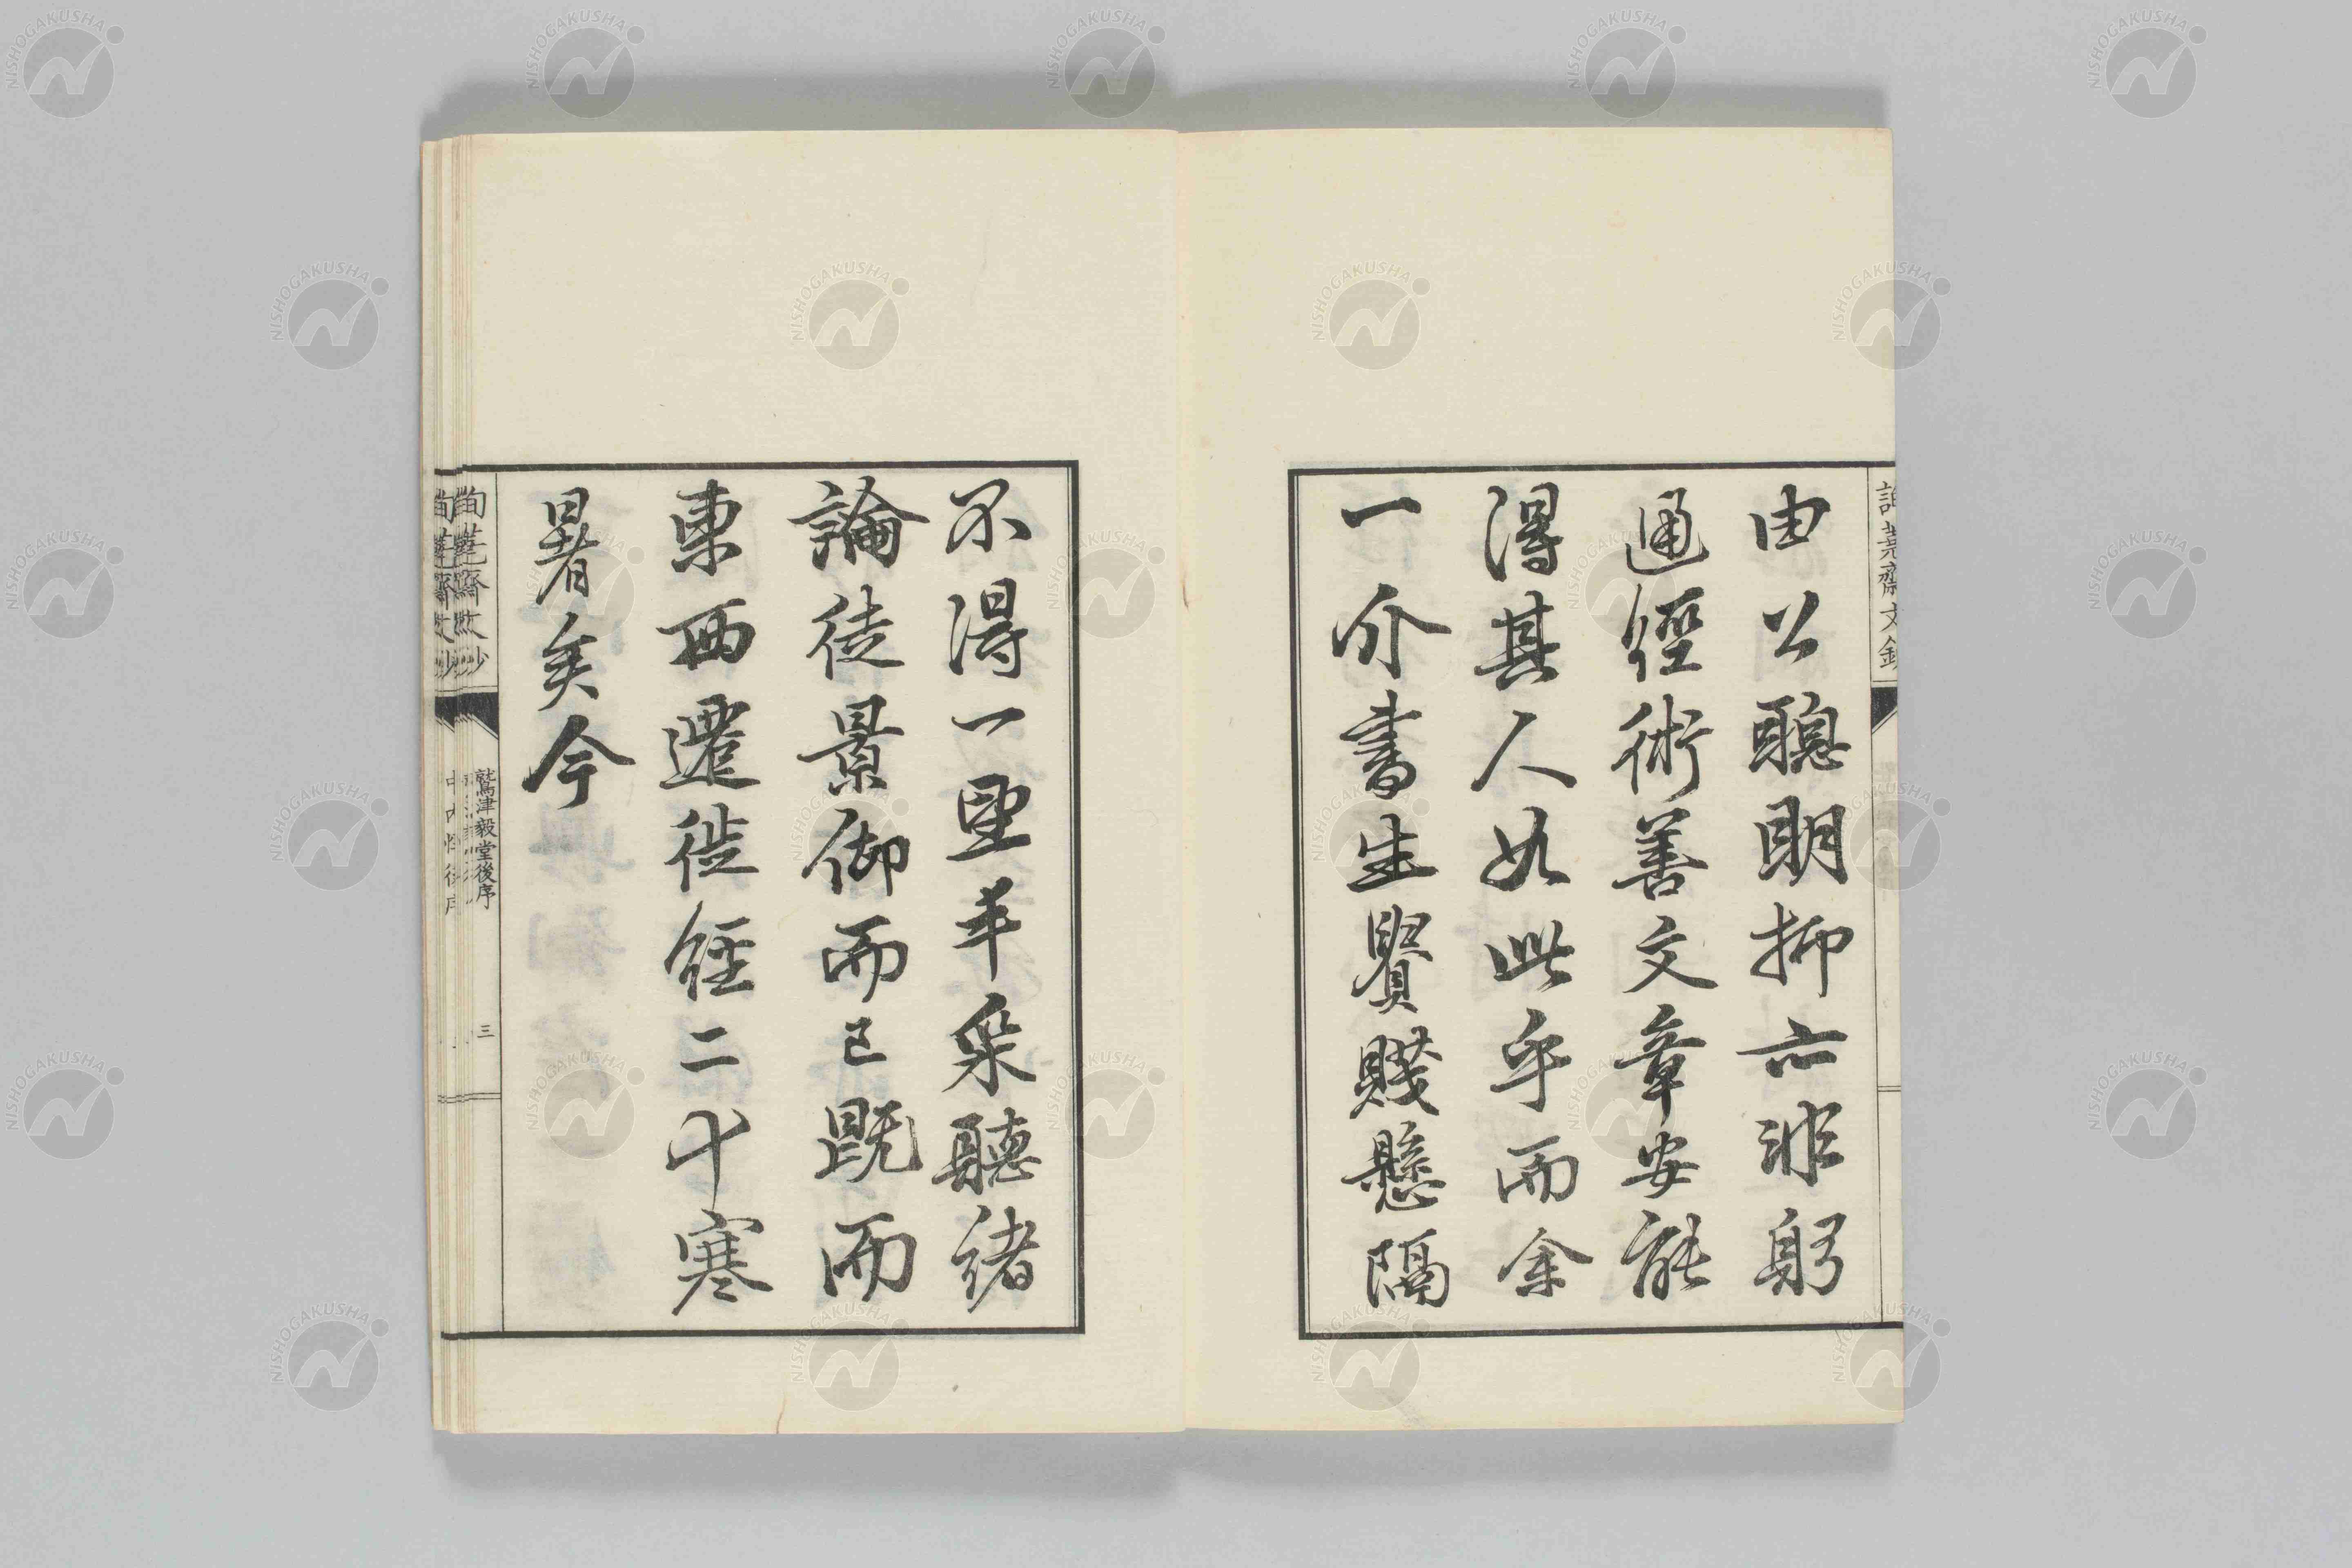 由公聰明抑亦非躬
通經術善文章安能
得其人如此乎而余
一介書生貴賤懸隔
不得一望丰采聽緒
論徒景仰而已既而
東西遷徙經二十寒
暑矣今
鷲津毅堂後序
三
NISHOGAKUSHA